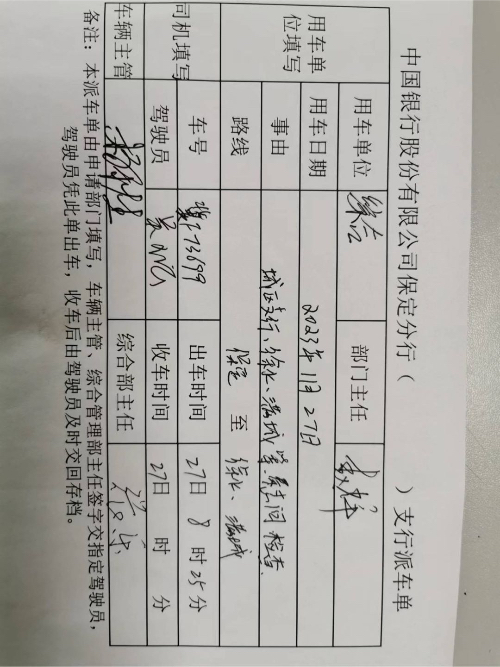 中国银行股份有限公司保定分行（ ）支行派车单
用车单位填写 用车单位 综合 部门主任
用车日期 2023年11月27日
事由 检查
路线 保定 至 徐水、
司机填写 车号 出车时间 27日 8时25分
驾驶员 收车时间 27日 时 分
车辆主管 综合部主任
备注：本派车单由申请部门填写，车辆主管、综合管理部主任签字交指定驾驶员，
驾驶员凭此单出车，收车后由驾驶员及时交回存档。